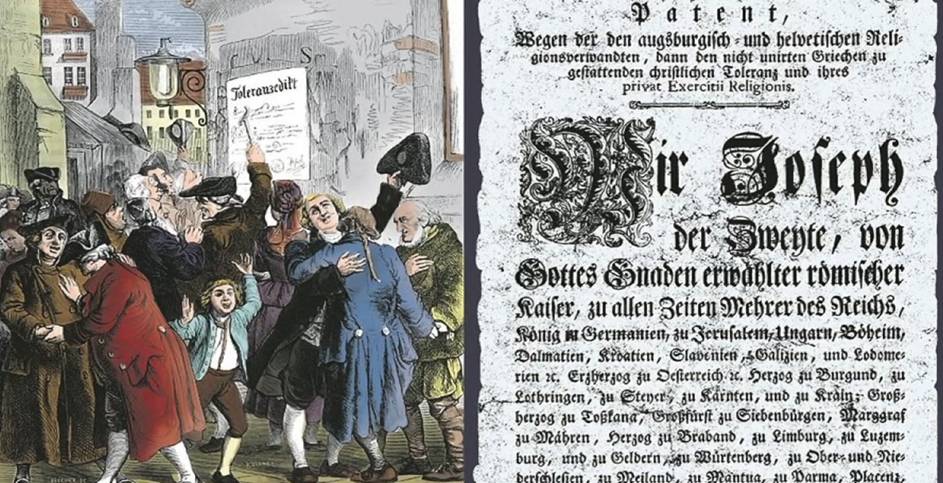 Toleranzedikt
Patent,
Wegen der den augsburgisch- und helvetischen Reli-
gionsverwandten, dann den nicht unirten Griechen zu
gestattenden christlichen Toleranz und ihres
privat Exercitii Religionis.
Wir Joseph
der Zweyte, von
Gottes Gnaden erwählter römischer
Kaiser, zu allen Zeiten Mehrer des Reichs,
König in Germanien, zu Jerusalem, Ungarn, Böheim,
Dalmatien, Kroatien, Slavenien, Galizien, und Lodome-
rien ꝛc. Erzherzog zu Oesterreich ꝛc. Herzog zu Burgund, zu
Lothringen, zu Steyer, zu Kärnten, und zu Krain; Groß-
herzog zu Toßkana, Großfürst zu Siebenbürgen, Marggraf
zu Mähren, Herzog zu Braband, zu Limburg, zu Luzem-
burg, und zu Geldern, zu Würtenberg, zu Ober- und Nie-
derschlesien, zu Meiland, zu Mantua, zu Parma, Placenz,